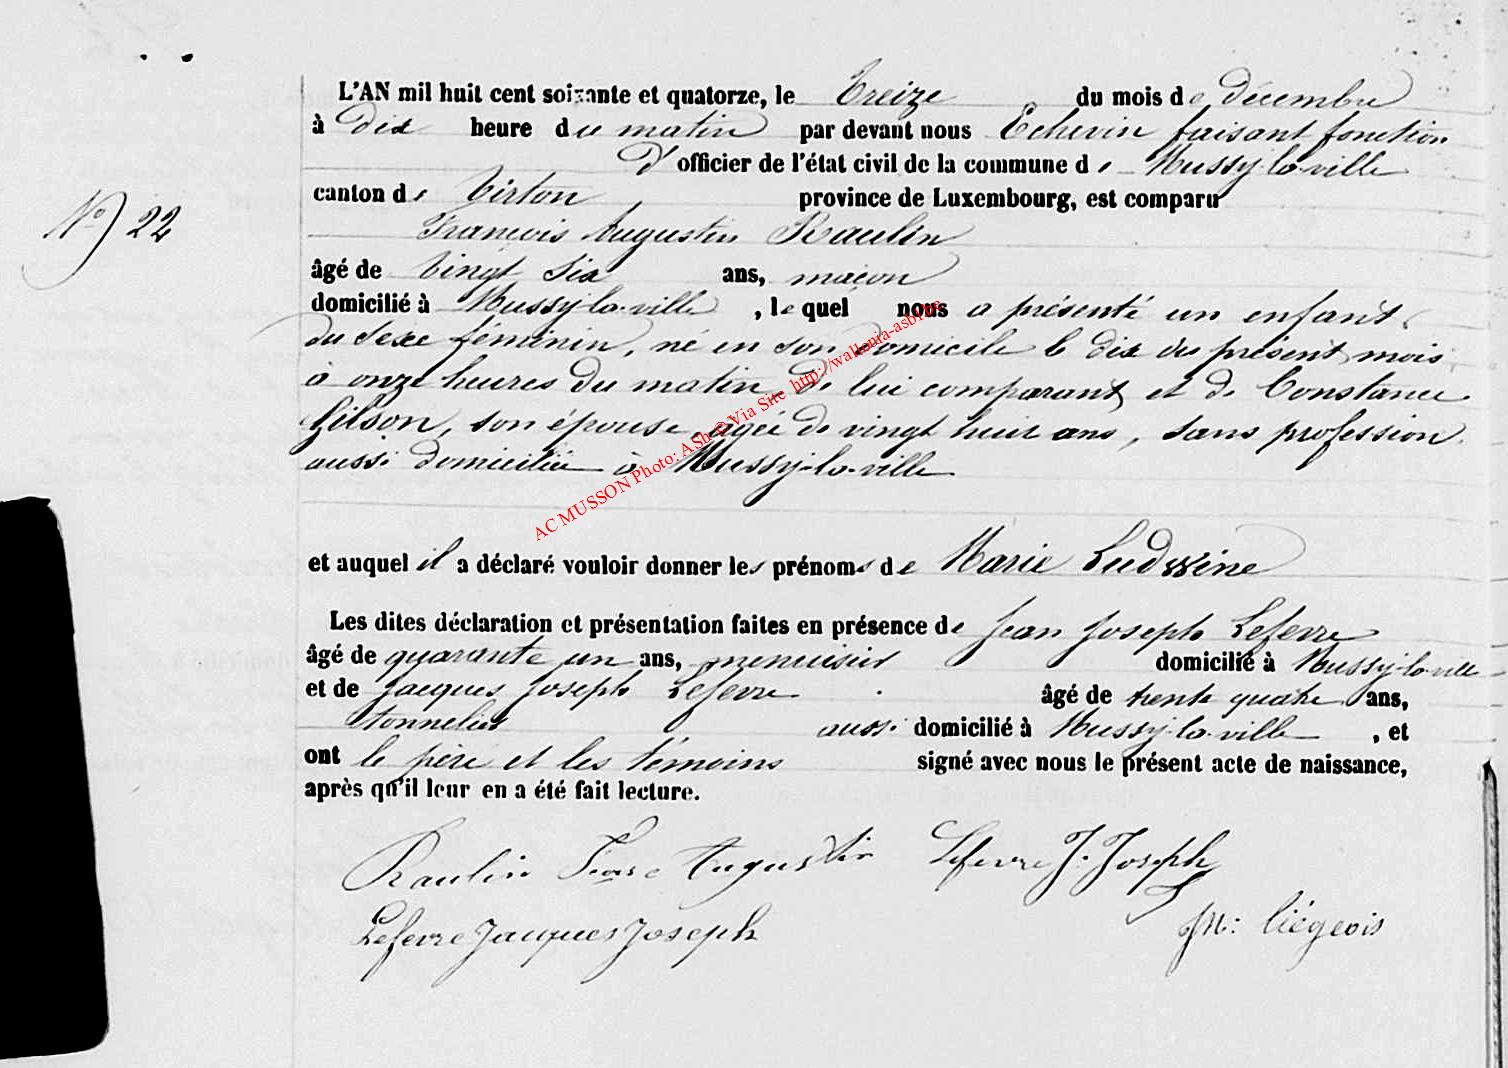 L'AN mil huit cent soixante et quatorze, le treize du mois de décembre
à dix heure du matin par devant nous Echevin faisant fonction
d'officier de l'état civil de la commune de Mussy-la-ville
canton de Virton province de Luxembourg, est comparu
N°) 22
François Augustin Raulin
âgé de vingt six ans, maçon
domicilié à Mussy-la-ville, lequel nous a présenté un enfant
du sexe féminin, né en son domicile le dix du présent mois
à onze heures du matin de lui comparant et de Constance
Gilson, son épouse, agée de vingt huit ans, sans profession
aussi domiciliée à Mussy-la-ville
AC MUSSON Photo: ASh © Via Site http://wallonia-asbl.be
et auquel il a déclaré vouloir donner les prénoms de Marie
Les dites déclaration et présentation faites en présence de Jean Joseph Lefevre
âgé de quarante un ans, menuisier domicilié à Mussy-la-ville
et de Jacques Joseph Lefevre âgé de trente quatre ans,
tonnelier aussi domicilié à Mussy-la-ville, et
ont le père et les témoins signé avec nous le présent acte de naissance,
après qu'il leur en a été fait lecture.
Raulin Augustin Lefevre J. Joseph
Lefevre Jacques Joseph Liégeois